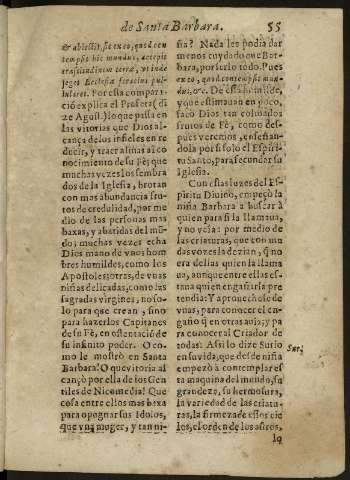 de Santa Barbara. 55
& ablessit, sic ex eo, quod con
temptus hic mundus, accepit
transitudinem terræ, vt inde
seges Ecclesiæ feracius pul-
lularet. Por esta compara-
ció explica el Profeta (di
ze Agust.) lo que passa en
las vitorias que Dios al-
cança de los infieles en re
ducir, y traer almas al co-
nocimiento de su Fè; que
muchas vezes los sembra
dos de la Iglesia, brotan
con mas abundancia fru-
tos de credulidad, por me
dio de las personas mas
baxas, y abatidas del mũ-
do; muchas vezes echa
Dios mano de vnos hom
bres humildes, como los
Apostoles; otras, de vnas
niñas delicadas, como las
sagradas virgines, no so-
lo para que crean, sino
para hazerlos Capitanes
de su Fè, en ostentació de
su infinito poder. O co-
mo le mostrò en Santa
Barbara! O que vitoria al
cançò por ella de los Gen
tiles de Nicomedia! Que
cosa entre ellos mas baxa
para opugnar sus Idolos,
que vna muger, y tan ni-
ña? Nada les podia dar
menos cuydado que Bar-
bara, por serlo todo. Pues
ex eo, quod contemptus mun-
dus, &c. De essa humilde,
y que estimauan en poco,
sacò Dios tan colmados
frutos de Fè, como des-
pues veremos, enseñan-
dola por si solo el Espiri-
tu Santo, para fecundar su
Iglesia.
Con estas luzes del Es-
piritu Diuino, empeçò la
niña Barbara a buscar à
quien para si la llamaua,
y no veìa: por medio de
las criaturas, que con mu
das vozes la dezian, q̃ no
era dellas quien la llama
ua, aunque entre ellas es-
taua quien engañarla pre
tendia: Y aprouechose de
vnas, para conocer el en-
gaño q̃ en otras auia; y pa
ra conocer al Criador de
todas: Assi lo dize Surio
en su vida, que desde niña
empezò à contemplar es
ta maquina del mundo, su
grandeza, su hermosura,
la variedad de las criatu-
ras, la firmeza de essos cie
los, el orden de los astros,
Sur.
lo